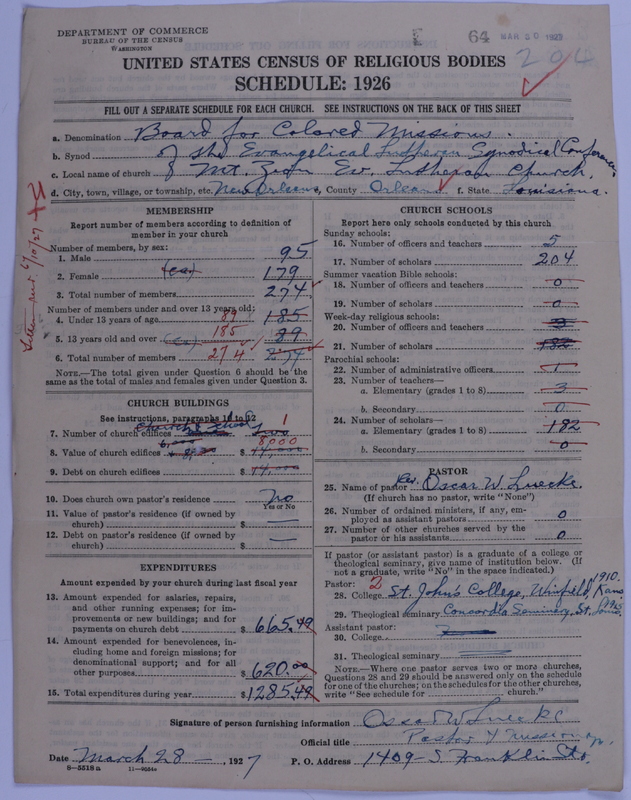 DEPARTMENT OF COMMERCE
BUREAU OF THE CENSUS
WASHINGTON
64 MAR 30 1927
204
UNITED STATES CENSUS OF RELIGIOUS BODIES
SCHEDULE: 1926
FILL OUT A SEPARATE SCHEDULE FOR EACH CHURCH. SEE INSTRUCTIONS ON THE BACK OF THIS SHEET
a. Denomination Board for Colored Missions.
b. Synod of the Evangelical Lutheran Synodical Conference
c. Local name of church Mt. Zion Ev. Lutheran Church,
d. City, town, village, or township, etc. New Orleans, County Orleans f. State Louisiana.
MEMBERSHIP
Report number of members according to definition of member in your church
Number of members, by sex:
1. Male 95
2. Female 179
3. Total number of members 274
Number of members under and over 13 years old:
4. Under 13 years of age 89 185
5. 13 years old and over 185 89
6. Total number of members 274 274
NOTE.—The total given under Question 6 should be the
same as the total of males and females given under Question 3.
CHURCH BUILDINGS
See instructions, paragraphs 10 to 12
Church & School 1
7. Number of church edifices two
6,000 8,000
8. Value of church edifices $ 14,000
9. Debt on church edifices $ 14,000
10. Does church own pastor's residence No
Yes or No
11. Value of pastor's residence (if owned by
church) $ —
12. Debt on pastor's residence (if owned by
church) $ —
EXPENDITURES
Amount expended by your church during last fiscal year
13. Amount expended for salaries, repairs,
and other running expenses; for im-
provements or new buildings; and for
payments on church debt $ 665.49
14. Amount expended for benevolences, in-
cluding home and foreign missions; for
denominational support; and for all
other purposes $ 620.00
15. Total expenditures during year $ 1285.49
CHURCH SCHOOLS
Report here only schools conducted by this church
Sunday schools:
16. Number of officers and teachers 5
17. Number of scholars 204
Summer vacation Bible schools:
18. Number of officers and teachers 0
19. Number of scholars 0
Week-day religious schools:
20. Number of officers and teachers 3
21. Number of scholars 182
Parochial schools:
22. Number of administrative officers 1
23. Number of teachers—
a. Elementary (grades 1 to 8) 3
b. Secondary 0
24. Number of scholars—
a. Elementary (grades 1 to 8) 182
b. Secondary 0
PASTOR
25. Name of pastor Rev. Oscar W. Luecke.
(If church has no pastor, write "None")
26. Number of ordained ministers, if any, em-
ployed as assistant pastors 0
27. Number of other churches served by the
pastor or his assistants 0
If pastor (or assistant pastor) is a graduate of a college or
theological seminary, give name of institution below. (If
not a graduate, write "No" in the space indicated.)
Pastor: 2
28. College St. John's College, Winfield, Kans. 1910.
29. Theological seminary Concordia Seminary, St. Louis
Assistant pastor:
30. College
31. Theological seminary
NOTE.—Where one pastor serves two or more churches,
Questions 28 and 29 should be answered only on the schedule
for one of the churches; on the schedules for the other churches,
write "See schedule for church."
Signature of person furnishing information Oscar W Luecke
Official title Pastor & Missionary.
Date March 28 —, 1927 P. O. Address 1409 - S. Franklin St.
8—5518a 11—9684a